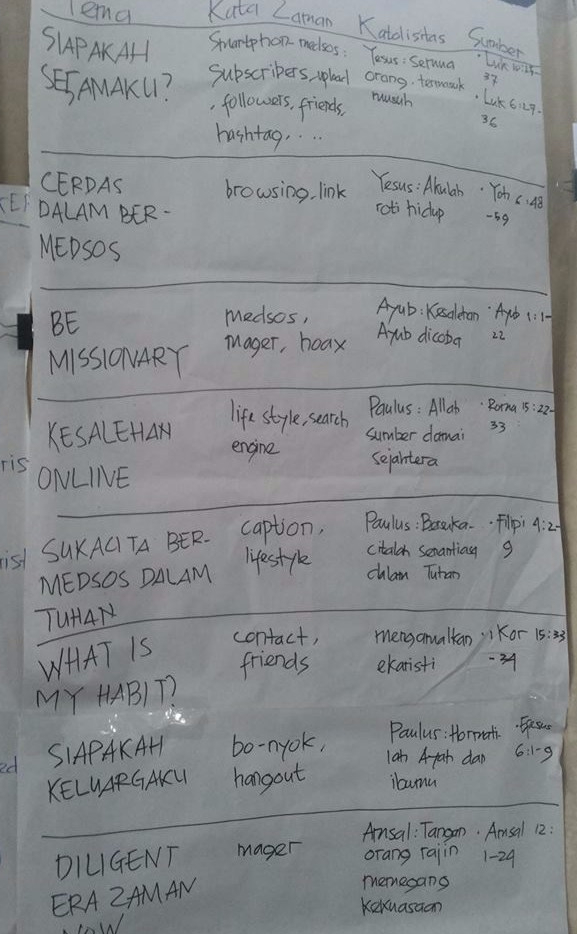 Tema Kata Zaman Katolisitas Sumber
SIAPAKAH
SESAMAKU?
Smartphone medsos:
Subscribers, upload
, followers, friends,
hashtag, ...
Yesus: Semua
orang, termasuk
musuh
• Luk 10:25-
37
• Luk 6:27-
36
CERDAS
DALAM BER-
MEDSOS
browsing, link
Yesus: Akulah
roti hidup
• Yoh 6:48
-59
BE
MISSIONARY
medsos,
mager, hoax
Ayub: Kesalehan
Ayub dicoba
• Ayub 1:1-
22
KESALEHAN
ONLINE
life style, search
engine
Paulus: Allah
sumber damai
sejahtera
• Roma 15:22-
33
SUKACITA BER-
MEDSOS DALAM
TUHAN
caption,
lifestyle
Paulus: Bersuka-
citalah senantiasa
dalam Tuhan
• Filipi 4:2-
9
WHAT IS
MY HABIT?
contact,
friends
mengamalkan
ekaristi
• 1 Kor 15:33
-34
SIAPAKAH
KELUARGAKU
bo-nyok,
hangout
Paulus: Hormati-
lah Ayah dan
ibumu
• Efesus
6:1-9
DILIGENT
ERA ZAMAN
NOW
mager
Amsal: Tangan
orang rajin
memegang
kekuasaan
• Amsal 12:
1-24